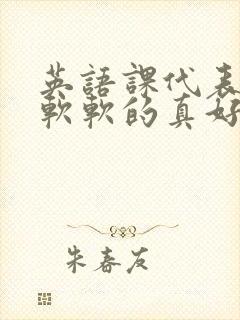 英語課代表
軟軟的真好
朱春友